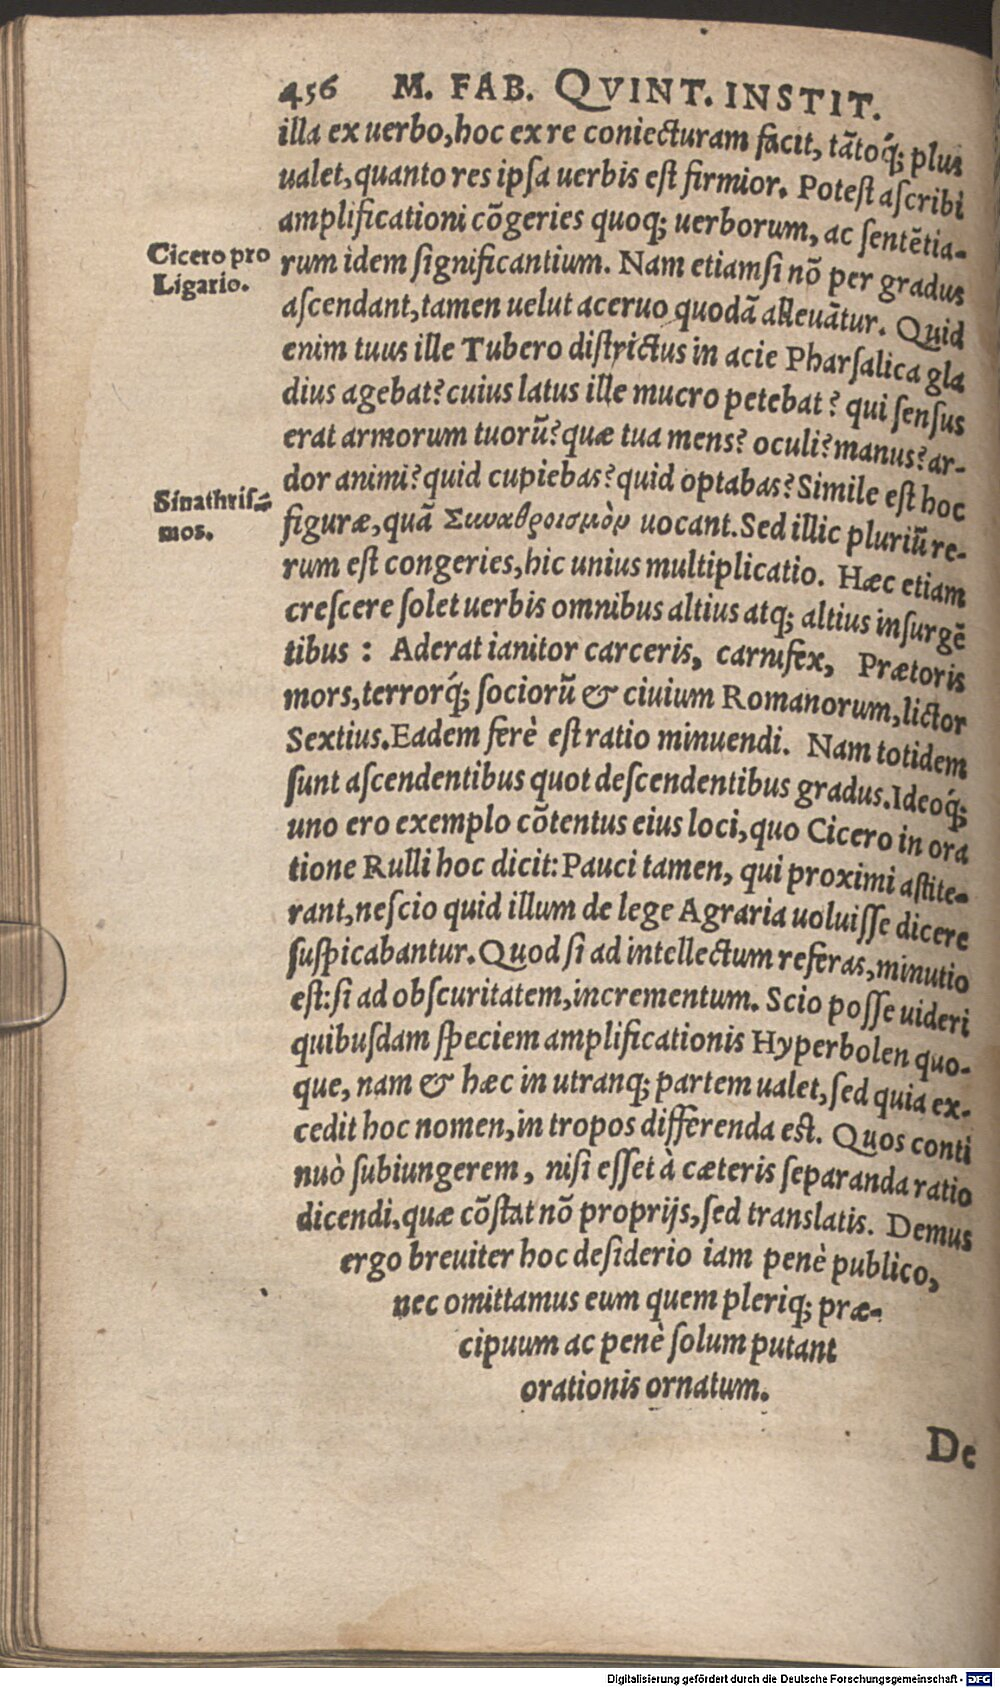 456 M. FAB. QVINT. INSTIT.
illa ex uerbo, hoc ex re coniecturam facit, tātoq́; plus
ualet, quanto res ipſa uerbis eſt firmior. Poteſt aſcribi
amplificationi cōgeries quoq; uerborum, ac ſentētia-
Cicero pro
Ligario.
rum idem ſignificantium. Nam etiamſi nō per gradus
aſcendant, tamen uelut aceruo quodā alleuātur. Quid
enim tuus ille Tubero diſtrictus in acie Pharſalica gla
dius agebat? cuius latus ille mucro petebat? qui ſenſus
erat armorum tuorū? quæ tua mens? oculi? manus? ar-
dor animi? quid cupiebas? quid optabas? Simile eſt hoc
Sinathriſ-
mos.
figuræ, quā Συναθροισμὸν uocant. Sed illic pluriū re-
rum eſt congeries, hic unius multiplicatio. Hæc etiam
creſcere ſolet uerbis omnibus altius atq; altius inſurgē
tibus : Aderat ianitor carceris, carnifex, Prætoris
mors, terrorq́; ſociorū & ciuium Romanorum, lictor
Sextius. Eadem ferè eſt ratio minuendi. Nam totidem
ſunt aſcendentibus quot deſcendentibus gradus. Ideoq́;
uno ero exemplo cōtentus eius loci, quo Cicero in ora
tione Rulli hoc dicit: Pauci tamen, qui proximi aſtite-
rant, neſcio quid illum de lege Agraria uoluiſſe dicere
ſuſpicabantur. Quod ſi ad intellectum referas, minutio
eſt: ſi ad obſcuritatem, incrementum. Scio poſſe uideri
quibuſdam ſpeciem amplificationis Hyperbolen quo-
que, nam & hæc in utranq; partem ualet, ſed quia ex-
cedit hoc nomen, in tropos differenda eſt. Quos conti
nuò ſubiungerem, niſi eſſet à cæteris ſeparanda ratio
dicendi, quæ cōſtat nō proprijs, ſed translatis. Demus
ergo breuiter hoc deſiderio iam penè publico,
nec omittamus eum quem pleriq; præ-
cipuum ac penè ſolum putant
orationis ornatum.
De
Digitalisierung gefördert durch die Deutsche Forschungsgemeinschaft - DFG